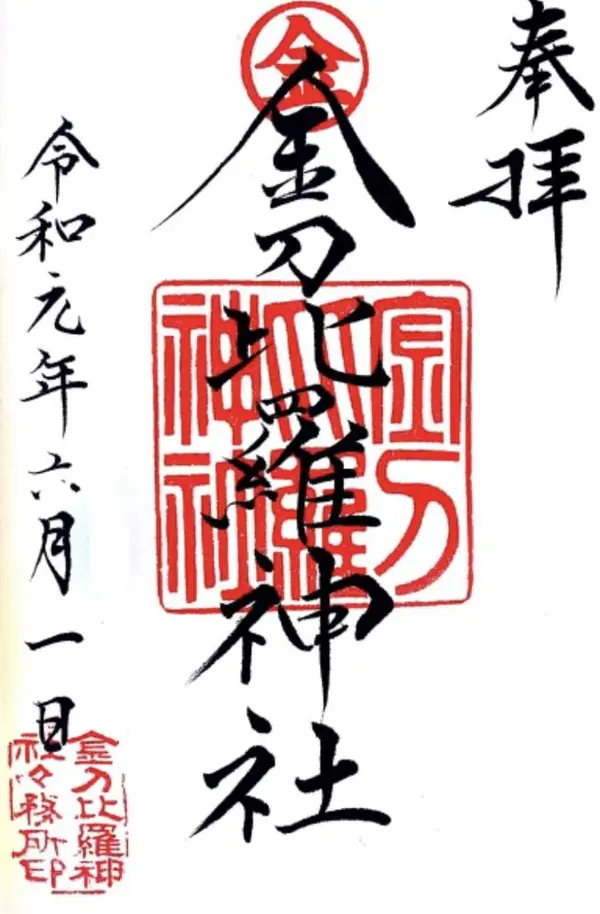 奉拝
金
金刀比羅神社
金刀
比羅
神社
令和元年六月一日
金刀比羅神
社々務所印